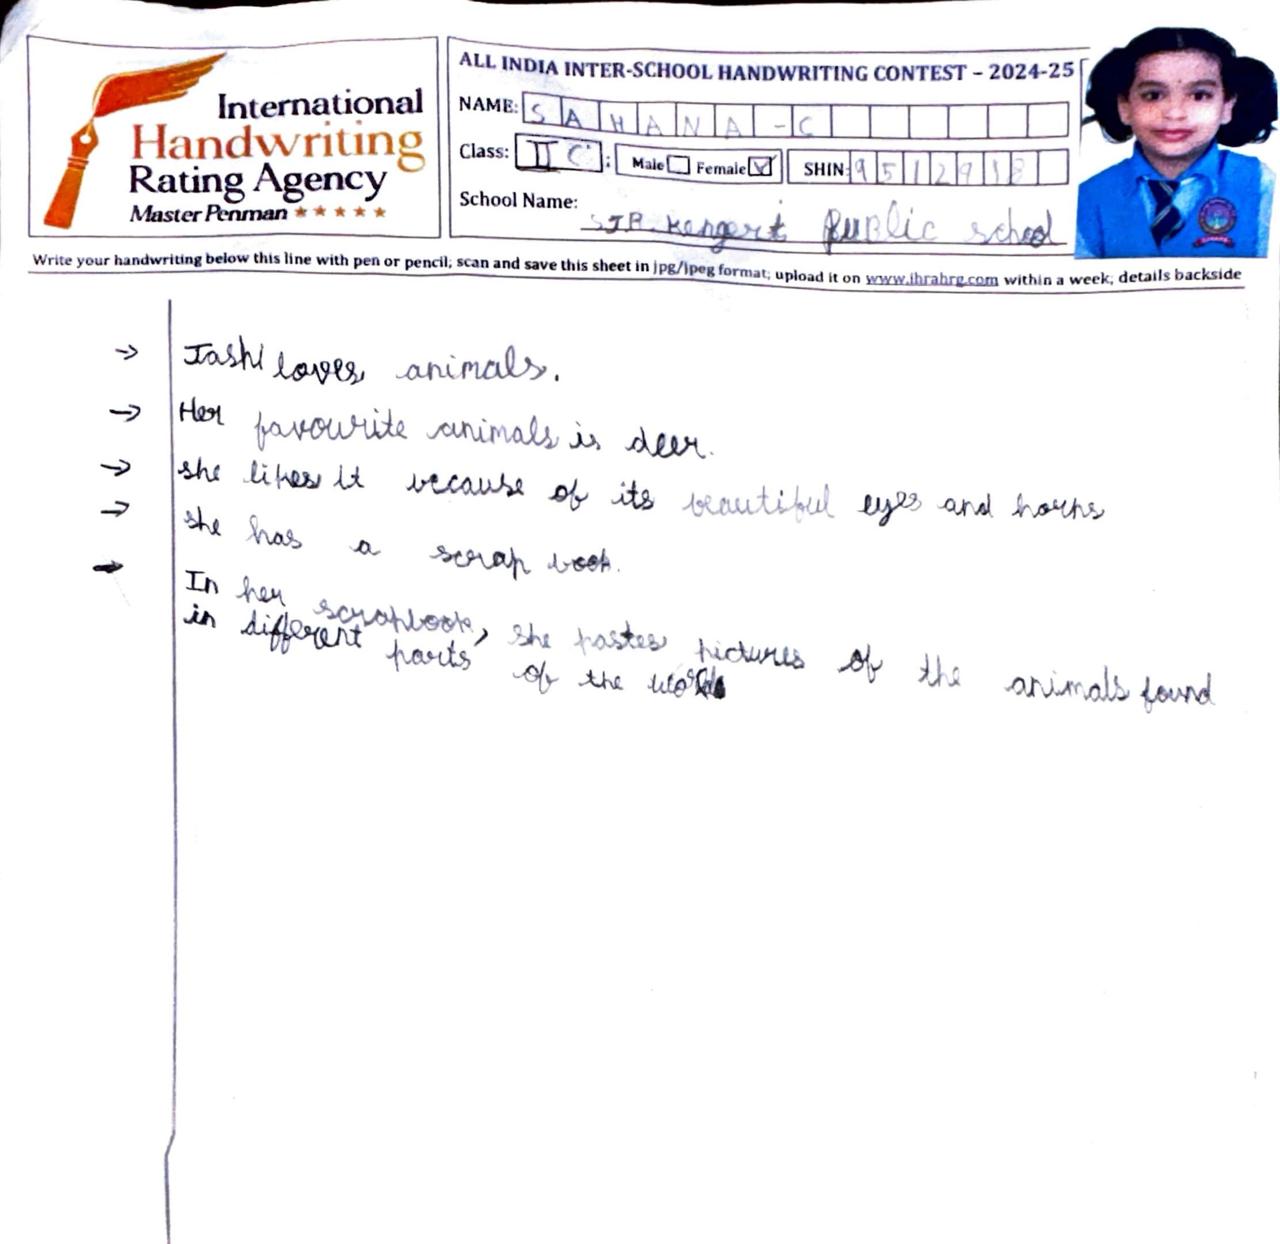 International
Handwriting
Rating Agency
Master Penman
ALL INDIA INTER-SCHOOL HANDWRITING CONTEST - 2024-25
NAME: SAHANA-C
Class: II C; Male Female SHIN: 9512918
School Name: SJR Kengeri public school
Write your handwriting below this line with pen or pencil; scan and save this sheet in jpg/jpeg format; upload it on www.ihrahrg.com within a week; details backside
→ Tashi loves animals.
→ Her favourite animals is deer.
→ she likes it because of its beautiful eyes and horns
→ she has a scrap book.
→ In her scrapbook, she pastes pictures of the animals found
in different parts of the